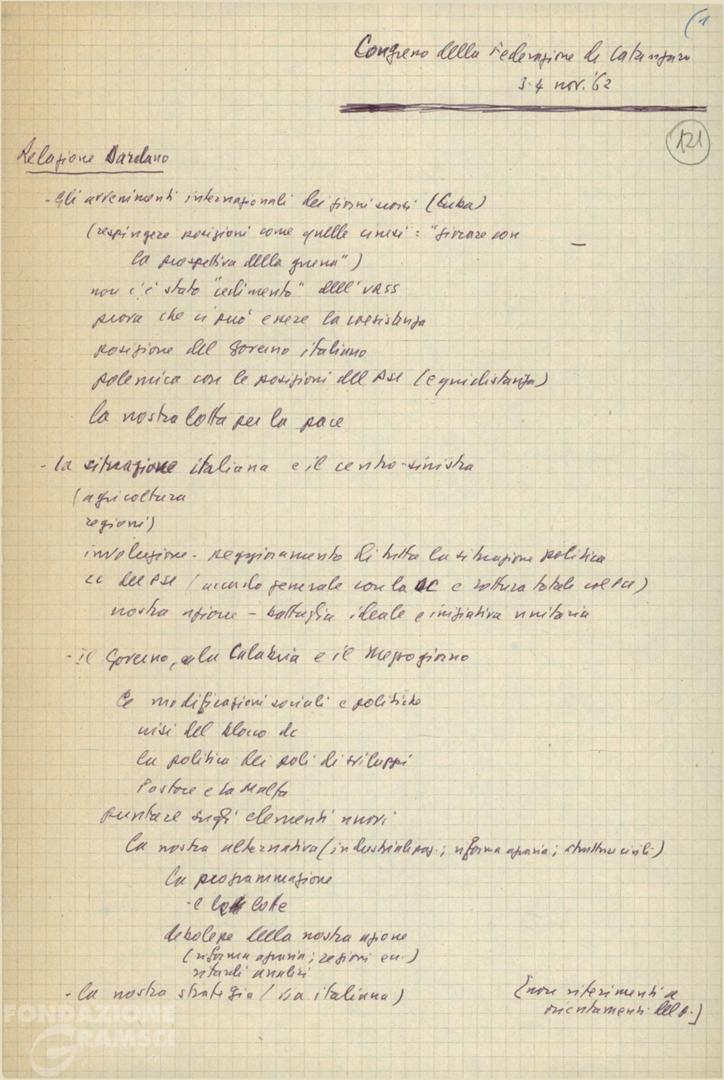 (1
Congresso della Federazione di Catanzaro
3-4 nov. '62
121
Relazione Dardano
- Gli avvenimenti internazionali dei giorni scorsi (Cuba)
(respingere posizioni come quelle cinesi: "giocare con
la prospettiva della guerra")
non c'è stato "cedimento" dell'URSS
prova che ci può essere la coesistenza
posizione del governo italiano
polemica con le posizioni del PSI (equidistanza)
la nostra lotta per la pace
- la situazione italiana e il centro-sinistra
(agricoltura
regioni)
involuzione - peggioramento di tutta la situazione politica
CC del PSI (accordo generale con la DC e rottura totale col PCI)
nostra azione - battaglia ideale e iniziativa unitaria
- il Governo, la Calabria e il Mezzogiorno
le modificazioni sociali e politiche
crisi del blocco dc
la politica dei poli di sviluppi
Pastore e La Malfa
puntare sugli elementi nuovi
la nostra alternativa (industrializzaz.; riforma agraria; strutture civili)
la programmazione
- e le lotte
debolezze della nostra azione
(riforma agraria; regioni ecc.)
ritardi analisi
- la nostra strategia (via italiana)
[non riferimenti a
orientamenti del P.]
FONDAZIONE
GRAMSCI